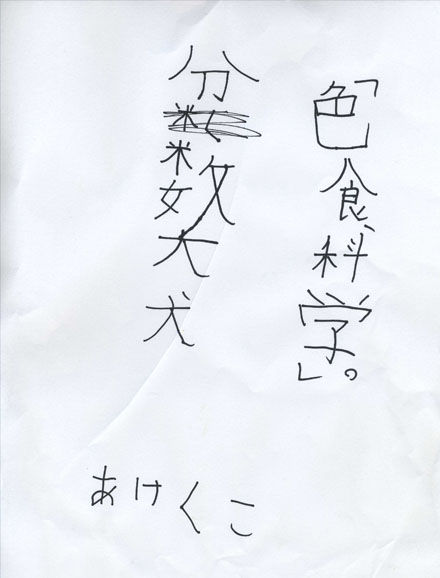 「色食、科学」。
分数大犬
あけくこ